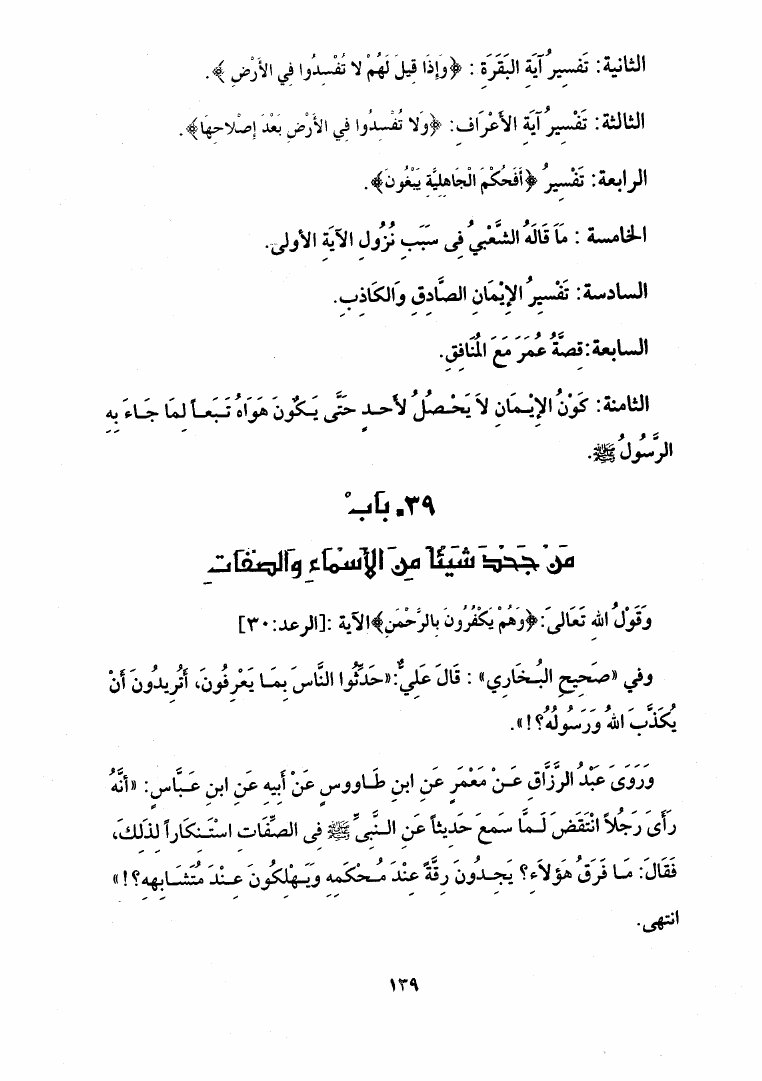 الثانية: تَفْسِيرُ آيَةِ البَقَرَةِ : ﴿وَإِذَا قِيلَ لَهُمْ لا تُفْسِدُوا فِي الأَرْضِ ﴾.
الثالثة: تَفْسِيرُ آيَةِ الأَعْرَافِ: ﴿وَلا تُفْسِدُوا فِي الأَرْضِ بَعْدَ إِصْلاحِهَا﴾.
الرابعة: تَفْسِيرُ ﴿أَفَحُكْمَ الْجَاهِلِيَّةِ يَبْغُونَ﴾.
الخامسة : مَا قَالَهُ الشَّعْبِيُ فى سَبَبِ نُزُولِ الآيَةِ الأولى.
السادسة: تَفْسِيرُ الإِيْمَانِ الصَّادِقِ وَالكَاذِبِ.
السابعة:قِصَّةُ عُمَرَ مَعَ الْمُنَافِقِ.
الثامنة: كَوْنُ الإِيْمَانِ لاَ يَحْصُلُ لأَحدٍ حَتَّى يَكُونَ هَوَاهُ تَبَعاً لِمَا جَاءَ بِهِ
الرَّسُولُ ﷺ.
٣٩. بابْ
مَنْ جَحْدَ شَيئًا مِنَ الأَسْمَاءِ وَالصفَاتِ
وَقَوْلُ الله تَعَالىَ:﴿وَهُمْ يَكْفُرُونَ بِالرَّحْمَنِ﴾الآية :[الرعد:٣٠]
وفي «صَحِيحِ البُخَارِي» : قَالَ عَلِيٌّ:«حَدِّثُوا النَّاسَ بِمَا يَعْرِفُونَ، أَتُرِيدُونَ أَنْ
يُكَذَّبَ اللهُ وَرَسُولُهُ؟!».
وَرَوَىَ عَبْدُ الرَّزَّاقِ عَنْ مَعْمَرٍ عَنِ ابنِ طَاووسٍ عَنْ أَبِيهِ عَنِ ابنِ عَبَّاسٍ: «أَنَّهُ
رَأَىَ رَجُلاً انْتَقَضَ لَمَّا سَمِعَ حَدِيثاً عَنِ النَّبِيِّ ﷺ فِى الصِّفَاتِ اسْتِنكَاراً لِذَلِكَ،
فَقَالَ: مَا فَرَقُ هَؤلاَءِ؟ يَجِدُونَ رِقَّةً عِنْدَ مُحْكَمِهِ وَيَهْلِكُونَ عِنْدَ مُتَشَابِهِهِ؟!»
انتهى.
١٣٩